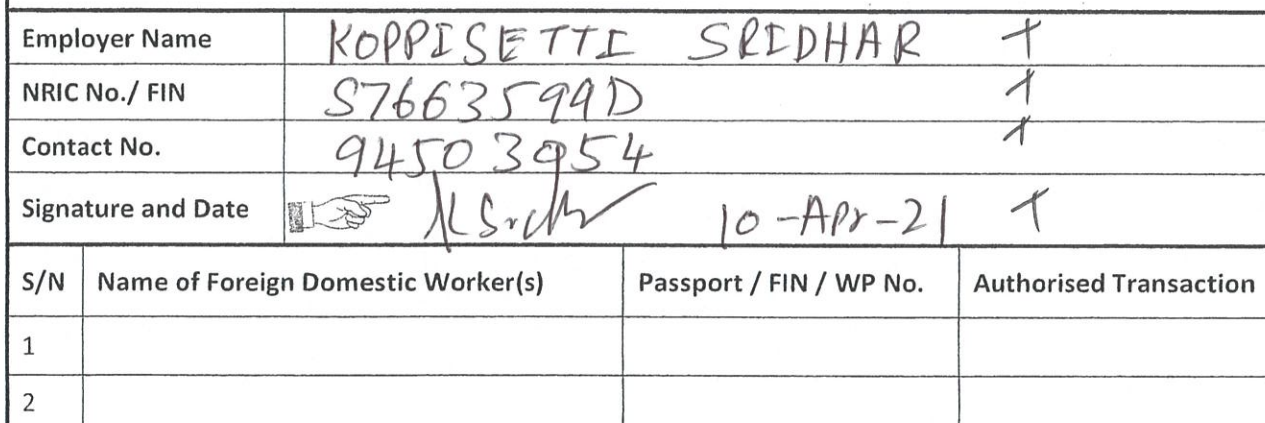 Employer Name KOPPISETTI SRIDHAR x
NRIC No./ FIN S7663599D x
Contact No. 94503954 x
Signature and Date 10-Apr-21 x
S/N Name of Foreign Domestic Worker(s) Passport / FIN / WP No. Authorised Transaction
1
2